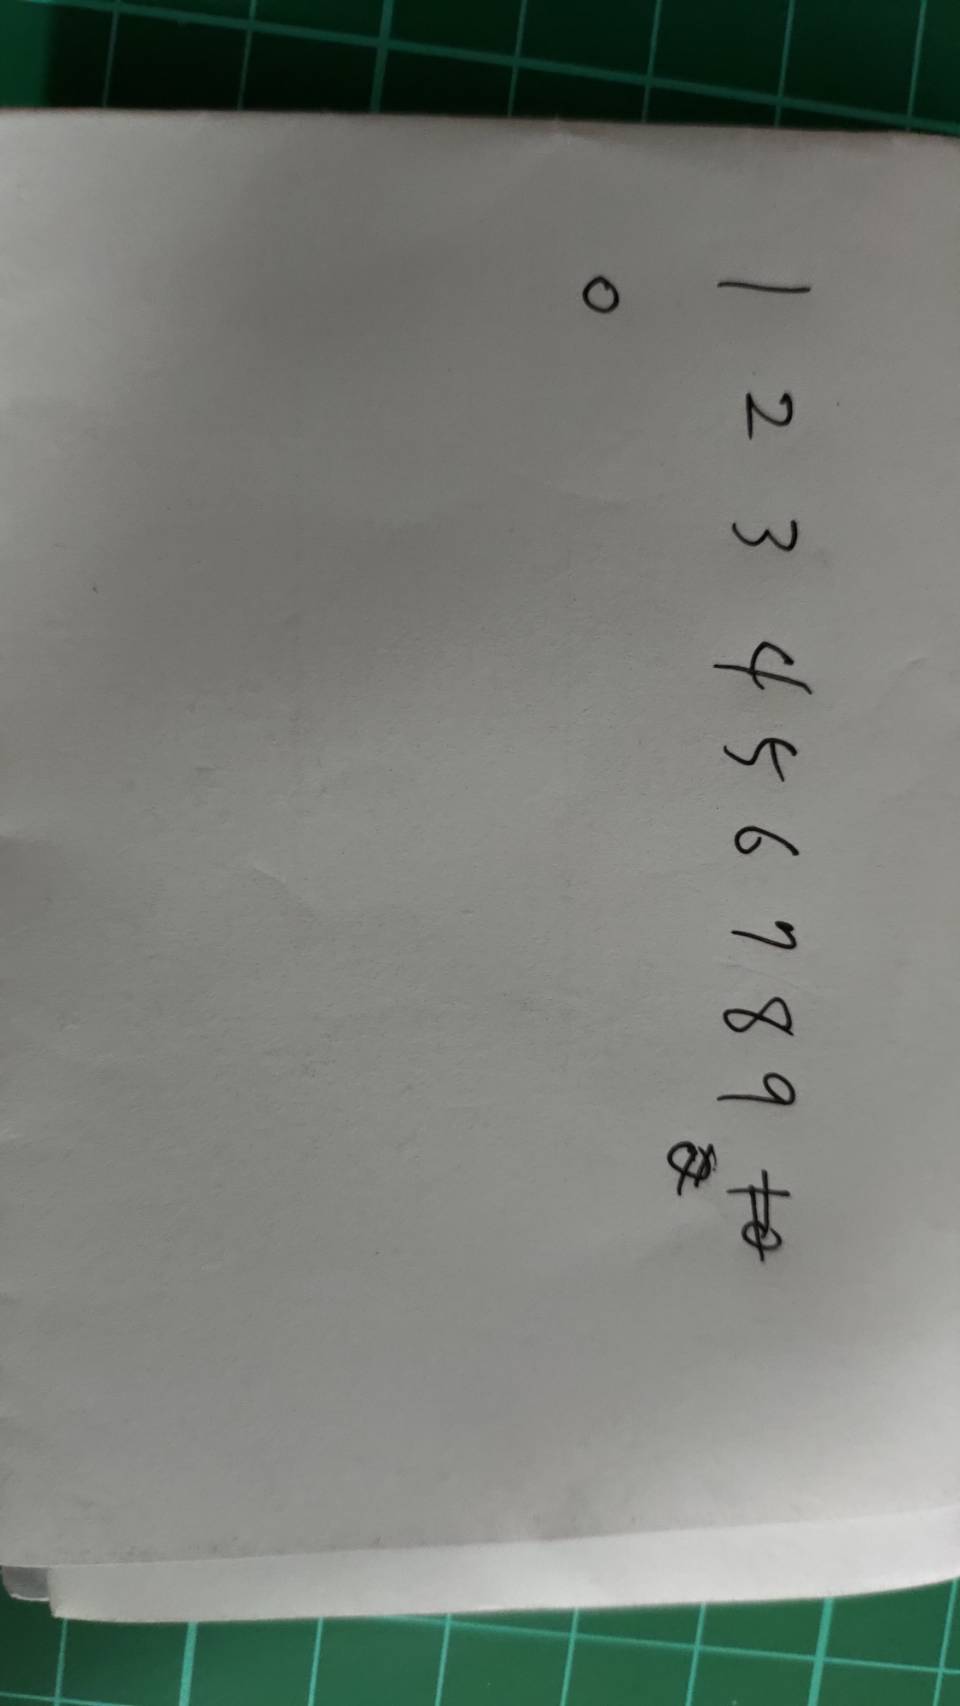 1 2 3 4 5 6 7 8 9
0